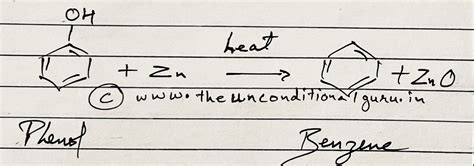 OH
heat
+ Zn ⟶ + ZnO
© www.theunconditionalguru.in
Phenol Benzene